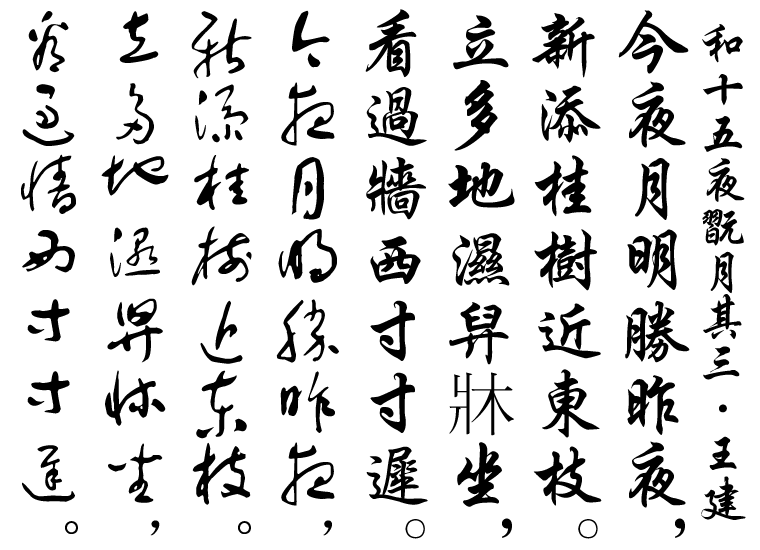 和十五夜翫月其三・王建
今夜月明勝昨夜，
新添桂樹近東枝。
立多地濕舁牀坐，
看過牆西寸寸遲。
今夜月明勝昨夜，
新添桂樹近東枝。
立多地濕舁牀坐，
看過牆西寸寸遲。